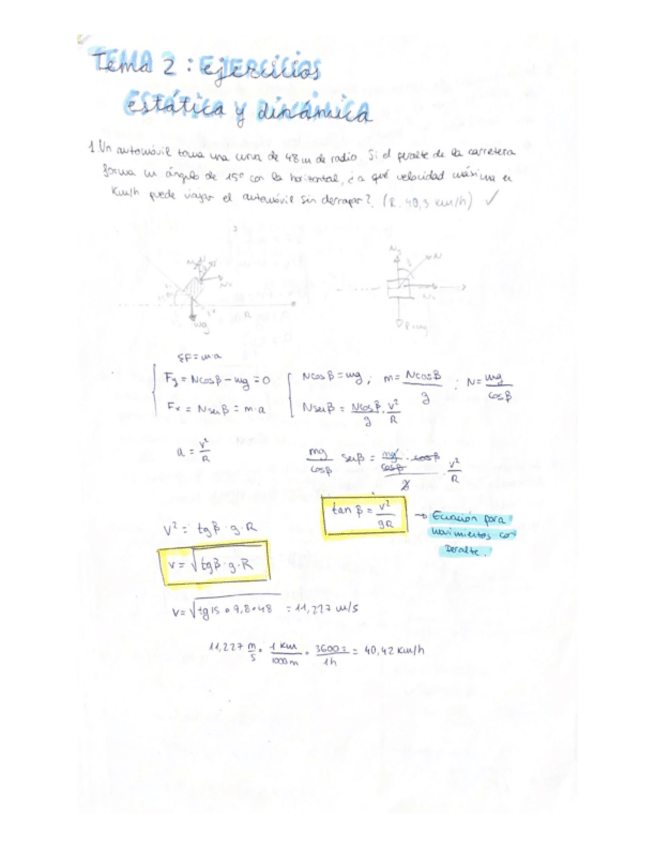 Tema 2: ejercicios
estática y dinámica
1. Un automóvil toma una curva de 48 m de radio. Si el peralte de la carretera
forma un ángulo de 15º con la horizontal, ¿a qué velocidad máxima en
Km/h puede viajar el automóvil sin derrapar? (R. 40,3 km/h) ✓
N
mg
R
N
P=mg
ΣF=m·a
Fy = Ncosβ - mg = 0
Fx = Nsenβ = m·a
Ncosβ = mg ; m = Ncosβ/g ; N = mg/cosβ
Nsenβ = Ncosβ/g · v²/R
a = v²/R
mg/cosβ senβ = mg/cosβ · cosβ/g · v²/R
tan β = v²/gR → Ecuación para
movimientos con
peralte.
v² = tgβ · g · R
v = √tgβ · g · R
v = √tg15 · 9,8 · 48 = 11,227 m/s
11,227 m/s · 1 Km/1000m · 3600s/1h = 40,42 Km/h